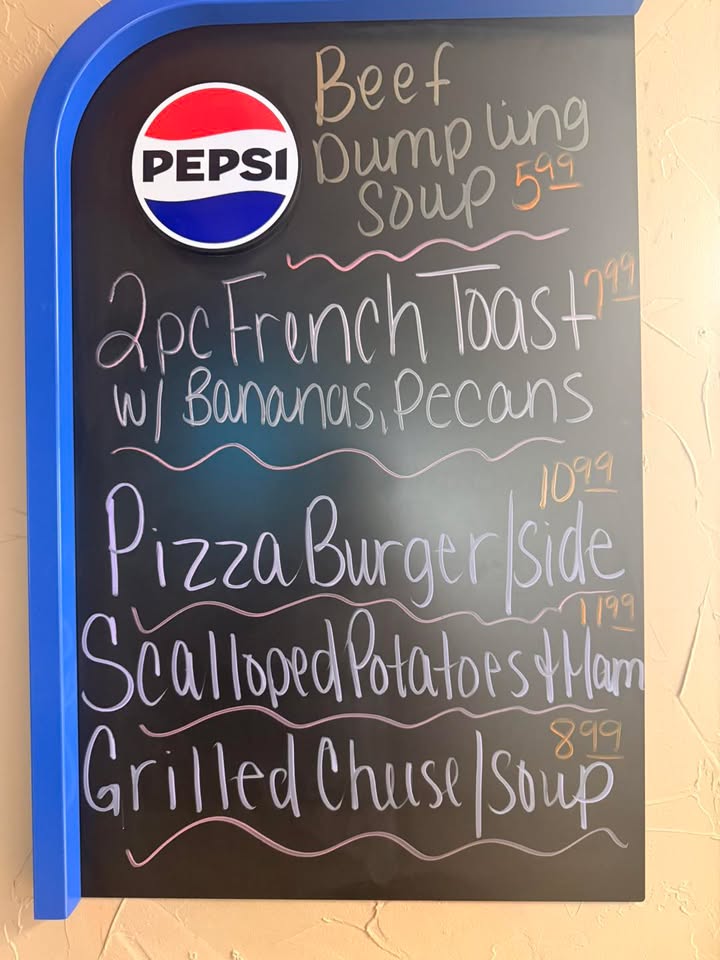 PEPSI
Beef
Dumpling
Soup 5.99
2pc French Toast 7.99
w/ Bananas, Pecans
10.99
Pizza Burger/side
11.99
Scalloped Potatoes & Ham
8.99
Grilled Cheese/soup